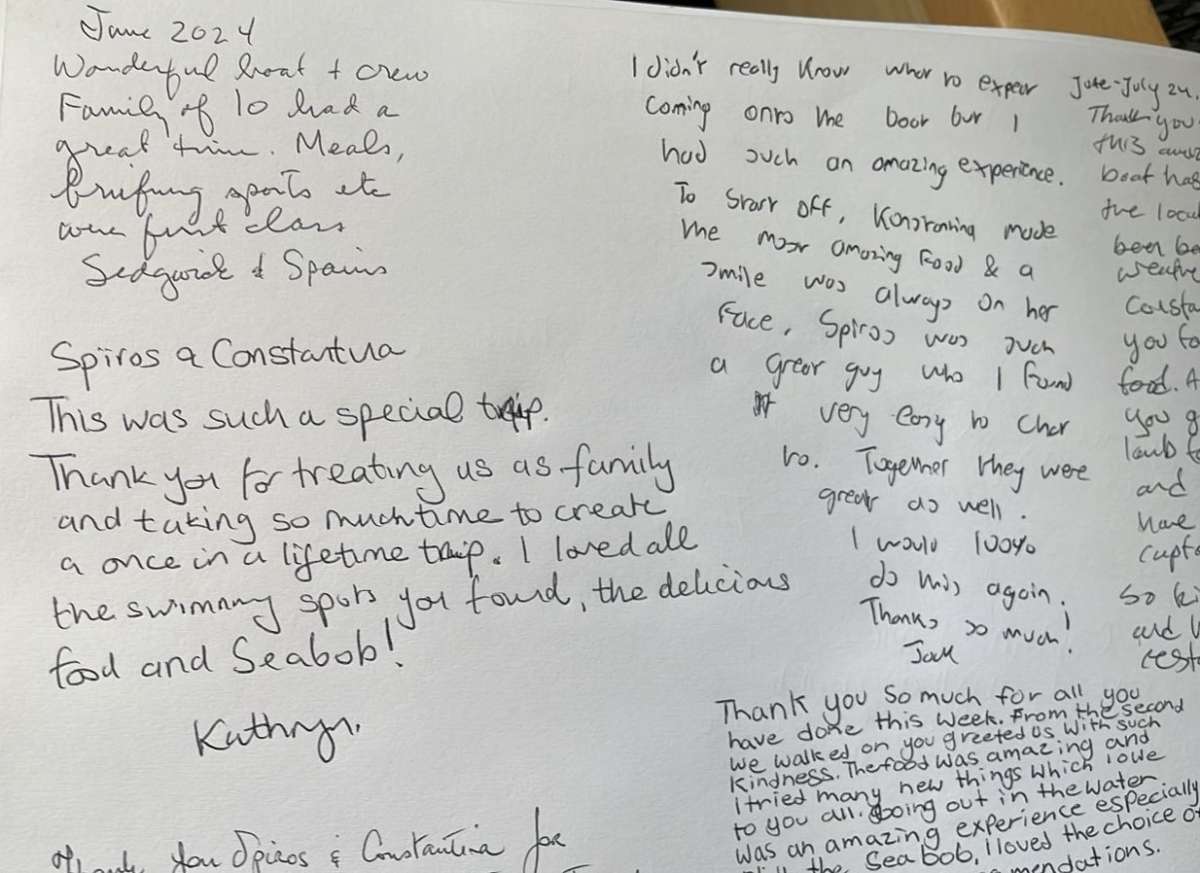 June 2024
Wonderful boat + crew
Family of 10 had a
great time. Meals,
briefing sports etc
were first class
Sedgwick & Spains
Spiros & Constantina
This was such a special trip.
Thank you for treating us as family
and taking so much time to create
a once in a lifetime trip. I loved all
the swimming spots you found, the delicious
food and Seabob!
Kathryn.
Thank you Spiros & Constantina for
I didn't really know what to expect
coming onto the boat but I
had such an amazing experience.
To start off, Konstantina made
the most amazing food & a
smile was always on her
face, Spiros was such
a great guy who I found
very easy to chat
to. Together they were
great as well.
I would 100%
do this again.
Thanks so much!
Jack
Thank you so much for all you
have done this week. From the second
we walked on you greeted us with such
kindness. The food was amazing and
I tried many new things which I owe
to you all. Going out in the water
was an amazing experience especially
the Sea bob, I loved the choice of
June-July 24.
Thank you
this
boat has
the local
been
Consta
you fo
food. A
you g
lamb fo
and
have
capta
so ki
and